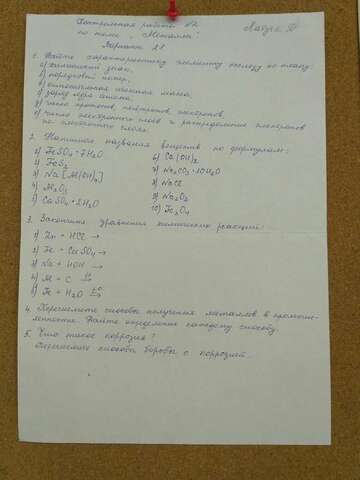 Контрольная работа №2
по теме „Металлы".
Вариант 21
1. Дайте характеристику элементу по плану:
а) химический знак,
б) порядковый номер,
в) относительная атомная масса,
г) заряд ядра атома,
д) число протонов, нейтронов, электронов,
е) число электронного слоев и распределение электронов
по электронным слоям.
2. Напишите названия веществ по формулам:
1) FeSO4·7H2O
2) FeS2
3) Na[Al(OH)4]
4) Al2O3
5) CaSO4·2H2O
6) Ca(OH)2
7) Na2CO3·10H2O
8) NaCl
9) Na2O2
10) Fe3O4
3. Закончите уравнения химических реакций:
1) Zn + HCl →
2) Fe + CuSO4 →
3) Na + HOH →
4) Al + C →
5) Fe + H2O t°→
4. Перечислите способы получения металлов в промыш-
ленности. Дайте определение каждому способу.
5. Что такое коррозия?
Перечислите способы борьбы с коррозией.